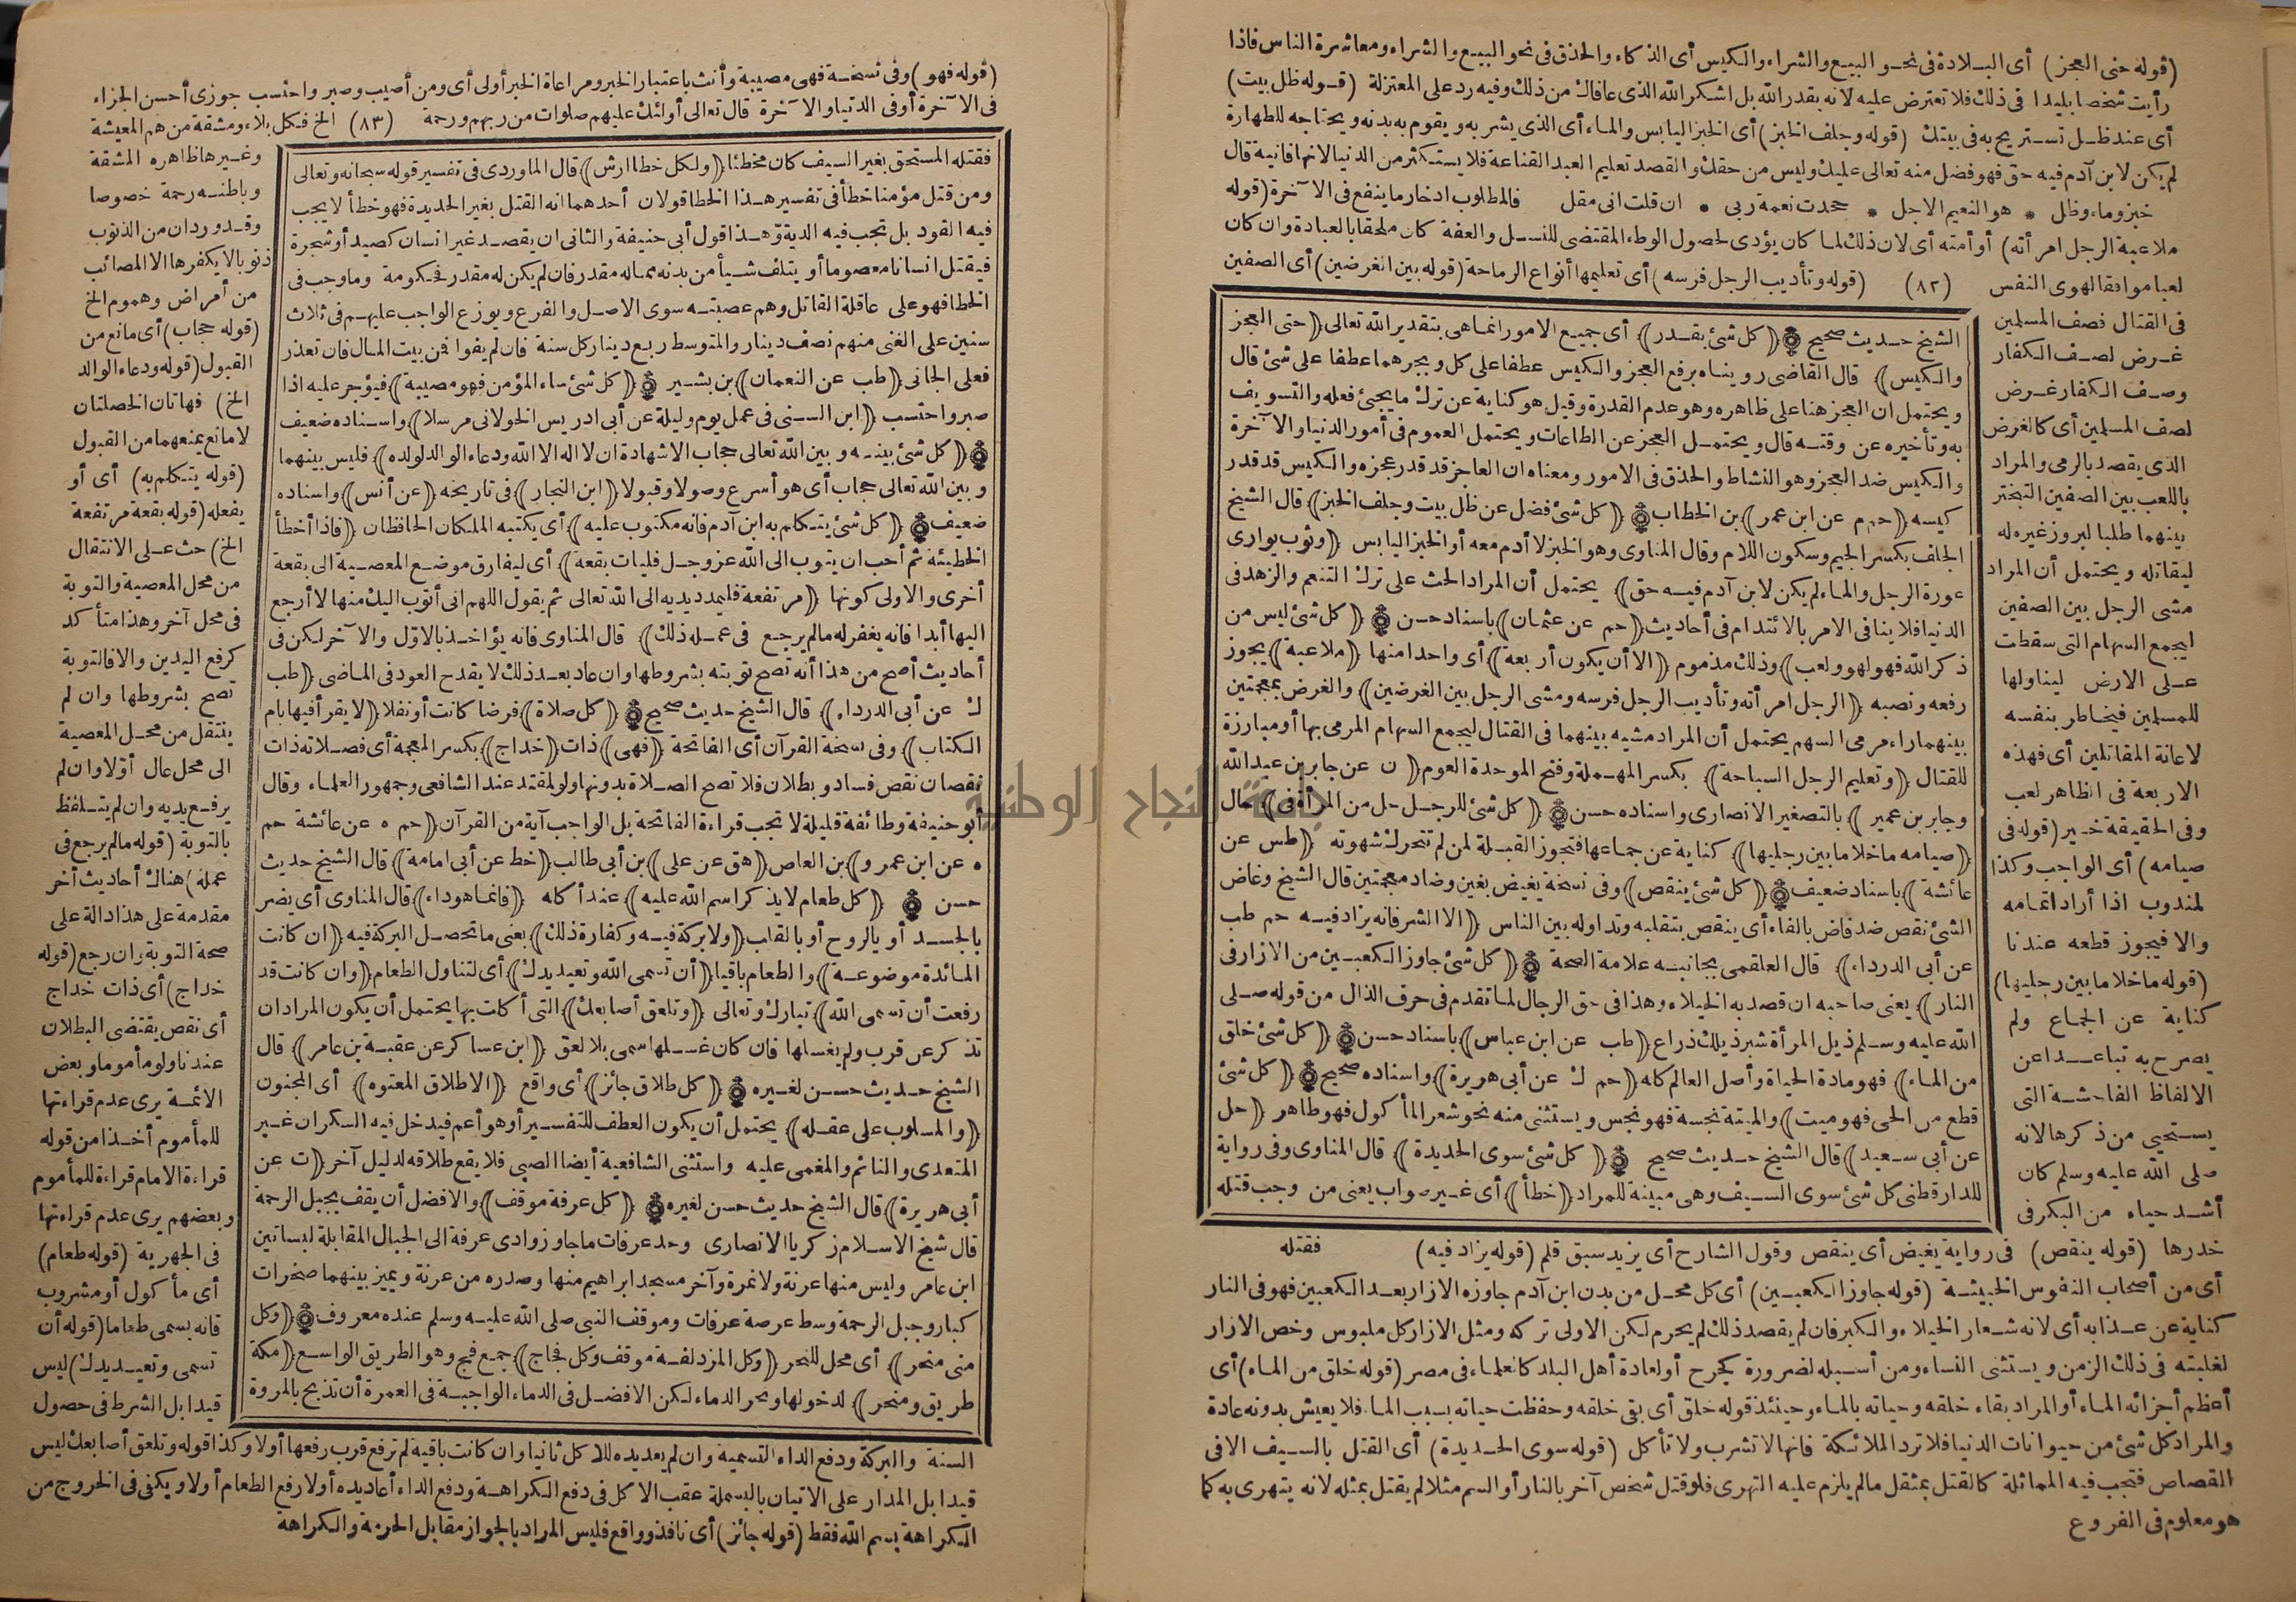 (قوله حتى العجز) أى البلادة فى نحو البيع والشراء والكيس أى الذكاء والحذق فى نحو البيع والشراء ومعاشرة الناس فاذا
رأيت شخصا بليدا فى ذلك فلا تعترض عليه لانه بقدر الله بل اشكر الله الذى عافاك من ذلك وفيه رد على المعتزلة (قوله ظل بيت)
أى عند ظل تستريح به فى بيتك (قوله وجلف الخبز) أى الخبز اليابس والماء أى الذى يشربه ويقوم به بدنه ويحتاجه للطهارة
لم يكن لابن آدم فيه حق فهو فضل منه تعالى عليك وليس من حقك والقصد تعليم العبد القناعة فلا يستكثر من الدنيا لانها فانية قال
خبز وماء وظل * هو النعيم الاجل * جحدت نعمة ربى * ان قلت انى مقل فالمطلوب ادخار ما ينفع فى الآخرة (قوله
ملاعبة الرجل امرأته) أو أمته أى لان ذلك لما كان يؤدى لحصول الوطء المقتضى للنسل والعفة كان ملحقا بالعبادة وان كان
لعبا موافقا لهوى النفس (٨٢) (قوله وتأديب الرجل فرسه) أى تعليمها أنواع الرماحة (قوله بين الغرضين) أى الصفين
فى القتال فصف المسلمين
غرض لصف الكفار
وصف الكفار غرض
لصف المسلمين أى كالغرض
الذى يقصد بالرمى والمراد
باللعب بين الصفين التبختر
بينهما طلبا لبروز غيره له
ليقاتله ويحتمل أن المراد
مشى الرجل بين الصفين
ليجمع السهام التى سقطت
على الارض ليناولها
للمسلمين فيخاطر بنفسه
لاعانة المقاتلين أى فهذه
الاربعة فى الظاهر لعب
وفى الحقيقة خير (قوله فى
صيامه) أى الواجب وكذا
لمندوب اذا أراد اتمامه
والا فيجوز قطعه عندنا
(قوله ما خلا ما بين رجليها)
كناية عن الجماع ولم
يصرح به تباعدا عن
الالفاظ الفاحشة التى
يستحيى من ذكرها لانه
صلى الله عليه وسلم كان
أشد حياء من البكر فى
الشيخ حديث صحيح (كل شئ بقدر) أى جميع الامور انما هى بتقدير الله تعالى (حتى العجز
والكيس) قال القاضى رويناه برفع العجز والكيس عطفا على كل وبجرهما عطفا على شئ قال
ويحتمل ان العجز هنا على ظاهره وهو عدم القدرة وقيل هو كناية عن ترك ما يجئ فعله والتسويف
به وتأخيره عن وقته قال ويحتمل العجز عن الطاعات ويحتمل العموم فى أمور الدنيا والآخرة
والكيس ضد العجز وهو النشاط والحذق فى الامور ومعناه ان العاجز قد قدر عجزه والكيس قد قدر
كيسه (حم م عن ابن عمر) بن الخطاب (كل شئ فضل عن ظل بيت وجلف الخبز) قال الشيخ
الجلف بكسر الجيم وسكون اللام وقال المناوى وهو الخبز لا أدم معه أو الخبز اليابس (وثوب يوارى
عورة الرجل والماء لم يكن لابن آدم فيه حق) يحتمل أن المراد الحث على ترك التنعم والزهد فى
الدنيا فلا ينافى الامر بالائتدام فى أحاديث (حم عن عثمان) باسناد حسن (كل شئ ليس من
ذكر الله فهو لهو ولعب) وذلك مذموم (الا أن يكون أربعة) أى واحدا منها (ملاعبة) يجوز
رفعه ونصبه (الرجل امرأته وتأديب الرجل فرسه ومشى الرجل بين الغرضين) والغرض بمعجمتين
بينهما راء مرمى السهم يحتمل أن المراد مشيه بينهما فى القتال ليجمع السهام المرمى بها أو مبارزة
للقتال (وتعليم الرجل السباحة) بكسر المهملة وفتح الموحدة العوم (ن عن جابر بن عبد الله
وجابر بن عمير) بالتصغير الانصارى واسناده حسن (كل شئ للرجل حل من المرأة فى) حال
(صيامه ما خلا ما بين رجليها) كناية عن جماعها فتجوز القبلة لمن لم تتحرك شهوته (طس عن
عائشة) باسناد ضعيف (كل شئ ينقص) وفى نسخة يغيض بغين وضاد معجمتين قال الشيخ وغاض
الشئ نقص ضد فاض بالفاء أى ينقص بتقلبه وتداوله بين الناس (الا الشر فانه يزاد فيه حم طب
عن أبى الدرداء) قال العلقمى بجانبه علامة الصحة (كل شئ جاوز الكعبين من الازار فى
النار) يعنى صاحبه ان قصد به الخيلاء وهذا فى حق الرجال لما تقدم فى حرف الذال من قوله صلى
الله عليه وسلم ذيل المرأة شبر ذيلك ذراع (طب عن ابن عباس) باسناد حسن (كل شئ خلق
من الماء) فهو مادة الحياة وأصل العالم كله (حم ك عن أبى هريرة) واسناده صحيح (كل شئ
قطع من الحى فهو ميت) والميتة نجسة فهو نجس ويستثنى منه نحو شعر المأكول فهو طاهر (حل
عن أبى سعيد) قال الشيخ حديث صحيح (كل شئ سوى الحديدة) قال المناوى وفى رواية
للدارقطنى كل شئ سوى السيف وهى مبينة للمراد (خطأ) أى غير صواب يعنى من وجب قتله
خدرها (قوله ينقص) فى رواية يغيض أى ينقص وقول الشارح أى يزيد سبق قلم (قوله يزاد فيه) فقتله
أى من أصحاب النفوس الخبيثة (قوله جاوز الكعبين) أى كل محل من بدن ابن آدم جاوزه الازار بعد الكعبين فهو فى النار
كناية عن عذابه أى لانه شعار الخيلاء والكبر فان لم يقصد ذلك لم يحرم لكن الاولى تركه ومثل الازار كل ملبوس وخص الازار
لغلبته فى ذلك الزمن ويستثنى النساء ومن أسبله لضرورة كجرح أو لعادة أهل البلد كالعلماء فى مصر (قوله خلق من الماء) أى
أعظم أجزائه الماء أو المراد بقاء خلقه وحياته بالماء وحينئذ قوله خلق أى بقى خلقه وحفظت حياته بسبب الماء فلا يعيش بدونه عادة
والمراد كل شئ من حيوانات الدنيا فلا ترد الملائكة فانها لا تشرب ولا تأكل (قوله سوى الحديدة) أى القتل بالسيف الا فى
القصاص فتجب فيه المماثلة كالقتل بمثقل ما لم يلزم عليه التهرى فلو قتل شخص آخر بالنار أو السم مثلا لم يقتل بمثله لانه يتهرى به كما
هو معلوم فى الفروع
(قوله فهو) وفى نسخة فهى مصيبة وأنث باعتبار الخبر ومراعاة الخبر أولى أى ومن أصيب وصبر واحتسب جوزى أحسن الجزاء
فى الآخرة أو فى الدنيا والآخرة قال تعالى أولئك عليهم صلوات من ربهم ورحمة (٨٣) الخ فكل بلاء ومشقة من هم المعيشة
وغيرها ظاهره المشقة
وباطنه رحمة خصوصا
وقد ورد ان من الذنوب
ذنوبا لا يكفرها الا المصائب
من أمراض وهموم الخ
(قوله حجاب) أى مانع من
القبول (قوله ودعاء الوالد
الخ) فهاتان الخصلتان
لا مانع يمنعهما من القبول
(قوله يتكلم به) أى أو
يفعله (قوله بقعة مرتفعة
الخ) حث على الانتقال
من محل المعصية والتوبة
فى محل آخر وهذا متأكد
كرفع اليدين والا فالتوبة
تصح بشروطها وان لم
ينتقل من محل المعصية
الى محل عال أولا وان لم
يرفع يديه وان لم يتلفظ
بالتوبة (قوله ما لم يرجع فى
عمله) هناك أحاديث أخر
مقدمة على هذا دالة على
صحة التوبة وان رجع (قوله
خداج) أى ذات خداج
أى نقص يقتضى البطلان
عندنا ولو مأموما وبعض
الائمة يرى عدم قراءتها
للمأموم أخذا من قوله
قراءة الامام قراءة للمأموم
وبعضهم يرى عدم قراءتها
فى الجهرية (قوله طعام)
أى مأكول أو مشروب
فانه يسمى طعاما (قوله أن
تسمى وتعيد يدك) ليس
قيدا بل الشرط فى حصول
فقتله المستحق بغير السيف كان مخطئا (ولكل خطا ارش) قال الماوردى فى تفسير قوله سبحانه وتعالى
ومن قتل مؤمنا خطأ فى تفسير هذا الخطا قولان أحدهما انه القتل بغير الحديدة فهو خطأ لا يجب
فيه القود بل تجب فيه الدية وهذا قول أبى حنيفة والثانى ان يقصد غير انسان كصيد أو شجرة
فيقتل انسانا معصوما أو يتلف شيأ من بدنه مما له مقدر فان لم يكن له مقدر فحكومة وما وجب فى
الخطا فهو على عاقلة القاتل وهم عصبته سوى الاصل والفرع ويوزع الواجب عليهم فى ثلاث
سنين على الغنى منهم نصف دينار والمتوسط ربع دينار كل سنة فان لم يفوا فمن بيت المال فان تعذر
فعلى الجانى (طب عن النعمان) بن بشير (كل شئ ساء المؤمن فهو مصيبة) فيؤجر عليه اذا
صبر واحتسب (ابن السنى فى عمل يوم وليلة عن أبى ادريس الخولانى مرسلا) واسناده ضعيف
(كل شئ بينه وبين الله تعالى حجاب الا شهادة ان لا اله الا الله ودعاء الوالد لولده) فليس بينهما
وبين الله تعالى حجاب أى هو أسرع وصولا وقبولا (ابن النجار) فى تاريخه (عن أنس) واسناده
ضعيف (كل شئ يتكلم به ابن آدم فانه مكتوب عليه) أى يكتبه الملكان الحافظان (فاذا أخطأ
الخطيئة ثم أحب ان يتوب الى الله عز وجل فليأت بقعة) أى ليفارق موضع المعصية الى بقعة
أخرى والاولى كونها (مرتفعة فليمدد يديه الى الله تعالى ثم يقول اللهم انى أتوب اليك منها لا أرجع
اليها أبدا فانه يغفر له ما لم يرجع فى عمله ذلك) قال المناوى فانه يؤاخذ بالاول والآخر لكن فى
أحاديث أصح من هذا أنه تصح توبته بشروطها وان عاد بعد ذلك لا يقدح العود فى الماضى (طب
ك عن أبى الدرداء) قال الشيخ حديث صحيح (كل صلاة) فرضا كانت أو نفلا (لا يقرأ فيها بام
الكتاب) وفى نسخة القرآن أى الفاتحة (فهى) ذات (خداج) بكسر المعجمة أى فصلاته ذات
نقصان نقص فساد وبطلان فلا تصح الصلاة بدونها ولو لمقتد عند الشافعى وجمهور العلماء وقال
أبو حنيفة وطائفة قليلة لا تجب قراءة الفاتحة بل الواجب آية من القرآن (حم ه عن عائشة حم
ه عن ابن عمرو) بن العاص (هق عن على) بن أبى طالب (خط عن أبى امامة) قال الشيخ حديث
حسن (كل طعام لا يذكر اسم الله عليه) عند أكله (فانما هو داء) قال المناوى أى يضر
بالجسد أو بالروح أو بالقلب (ولا بركة فيه وكفارة ذلك) يعنى ما تحصل البركة فيه (ان كانت
المائدة موضوعة) والطعام باقيا (أن تسمى الله وتعيد يدك) أى لتناول الطعام (وان كانت قد
رفعت أن تسمى الله) تبارك وتعالى (وتلعق أصابعك) التى أكلت بها يحتمل أن يكون المراد ان
تذكر عن قرب ولم يغسلها فان كان غسلها سمى بلا لعق (ابن عساكر عن عقبة بن عامر) قال
الشيخ حديث حسن لغيره (كل طلاق جائز) أى واقع (الا طلاق المعتوه) أى المجنون
(والمسلوب على عقله) يحتمل أن يكون العطف للتفسير أو هو أعم فيدخل فيه السكران غير
المتعدى والنائم والمغمى عليه واستثنى الشافعية أيضا الصبى فلا يقع طلاقه لدليل آخر (ت عن
أبى هريرة) قال الشيخ حديث حسن لغيره (كل عرفة موقف) والافضل أن يقف بجبل الرحمة
قال شيخ الاسلام زكريا الانصارى وحد عرفات ما جاوز وادى عرفة الى الجبال المقابلة لبساتين
ابن عامر وليس منها عرنة ولا نمرة وآخر مسجد ابراهيم منها وصدره من عرنة ويميز بينهما صخرات
كبار وجبل الرحمة وسط عرصة عرفات وموقف النبى صلى الله عليه وسلم عنده معروف (وكل
منى منحر) أى محل للنحر (وكل المزدلفة موقف وكل فجاج) جمع فج وهو الطريق الواسع (مكة
طريق ومنحر) لدخولها ونحر الدماء لكن الافضل فى الدماء الواجبة فى العمرة أن تذبح بالمروة
السنة والبركة ودفع الداء التسمية وان لم يعد يده للاكل ثانيا وان كانت باقية لم ترفع قرب رفعها أولا وكذا قوله وتلعق أصابعك ليس
قيدا بل المدار على الاتيان بالبسملة عقب الاكل فى دفع الكراهة ودفع الداء أعاد يده أولا رفع الطعام أولا ويكفى فى الخروج من
الكراهة بسم الله فقط (قوله جائز) أى نافذ وواقع فليس المراد بالجواز مقابل الحرمة والكراهة
جامعة النجاح الوطنية